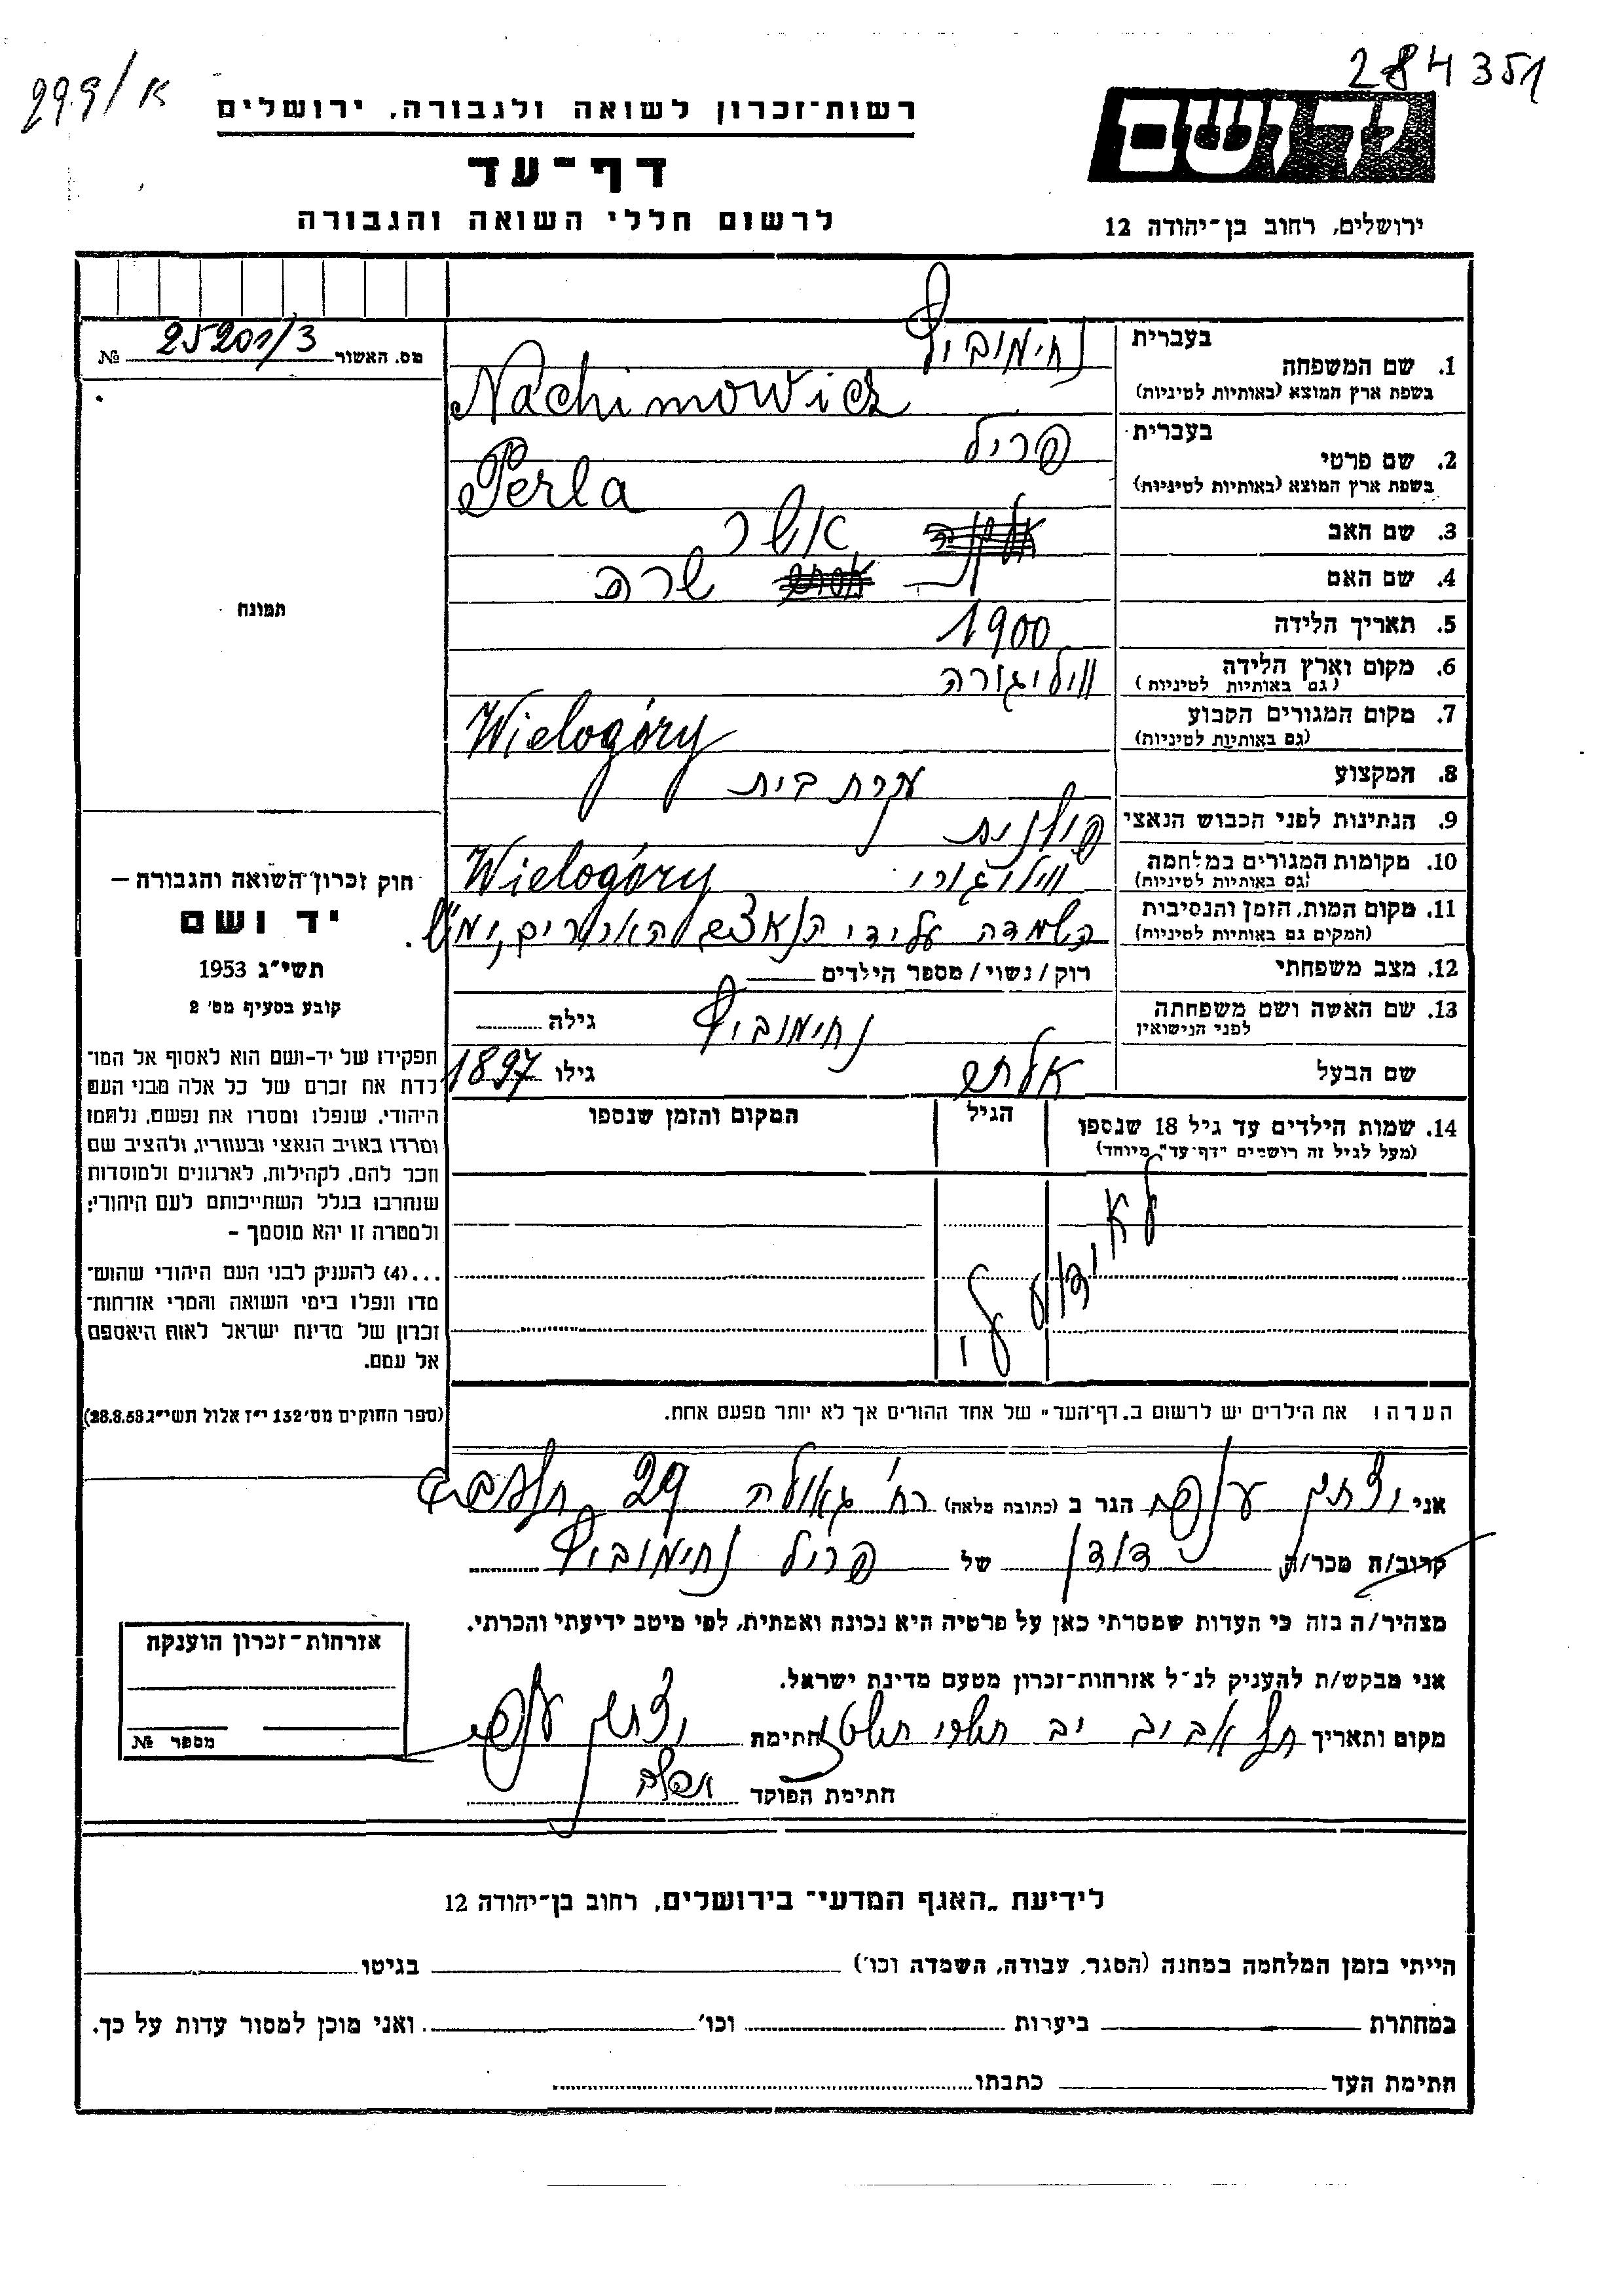 284351
299/א
יד ושם
רשות־זכרון לשואה ולגבורה, ירושלים
דף־עד
לרשום חללי השואה והגבורה
ירושלים, רחוב בן־יהודה 12
מס. האשור 25201/3 №
תמונה
חוק זכרון השואה והגבורה —
יד ושם
תשי״ג 1953
קובע בסעיף מס׳ 2
תפקידו של יד-ושם הוא לאסוף אל המו־
לדת את זכרם של כל אלה מבני העם
היהודי, שנפלו ומסרו את נפשם, נלחמו
ומרדו באויב הנאצי ובעוזריו, ולהציב שם
וזכר להם, לקהילות, לארגונים ולמוסדות
שנחרבו בגלל השתייכותם לעם היהודי;
ולמטרה זו יהא מוסמך -
...(4) להעניק לבני העם היהודי שהוש־
מדו ונפלו בימי השואה והמרי אזרחות־
זכרון של מדינת ישראל לאות היאספם
אל עמם.
(ספר החוקים מס׳ 132 י״ז אלול תשי״ג 28.8.53)
בעברית נחימוביץ
1. שם המשפחה
בשפת ארץ המוצא (באותיות לטיניות) Nachimowicz
בעברית פריל
2. שם פרטי
בשפת ארץ המוצא (באותיות לטיניות) Perla
3. שם האב אשר
4. שם האם שרה
5. תאריך הלידה 1900
6. מקום וארץ הלידה וויליגורה
(גם באותיות לטיניות)
7. מקום המגורים הקבוע Wielogóry
(גם באותיות לטיניות)
8. המקצוע עקרת בית
9. הנתינות לפני הכבוש הנאצי פולנית
10. מקומות המגורים במלחמה ווילוגורי Wielogóry
(גם באותיות לטיניות)
11. מקום המות, הזמן והנסיבות השמדה על ידי הנאצים הארורים, ימ״ש.
(המקום גם באותיות לטיניות)
12. מצב משפחתי רוק / נשוי / מספר הילדים
13. שם האשה ושם משפחתה נחימוביץ גילה
לפני הנישואין
שם הבעל גילו 1897
14. שמות הילדים עד גיל 18 שנספו הגיל המקום והזמן שנספו
(מעל לגיל זה רושמים ״דף־עד״ מיוחד)
לא ידוע לי
הערה: את הילדים יש לרשום ב״דף־העד״ של אחד ההורים אך לא יותר מפעם אחת.
אני יצחק הגר ב (כתובת מלאה) רח׳ גאולה 29
קרוב/ה מכר/ה דודן של פריל נחימוביץ
מצהיר/ה בזה כי העדות שמסרתי כאן על פרטיה היא נכונה ואמתית, לפי מיטב ידיעתי והכרתי.
אני מבקש/ת להעניק לנ״ל אזרחות־זכרון מטעם מדינת ישראל.
מקום ותאריך תל אביב יב תשרי חתימת יצחק
חתימת הפוקד
אזרחות־זכרון הוענקה
מספר №
לידיעת ״האגף המדעי״ בירושלים, רחוב בן־יהודה 12
הייתי בזמן המלחמה במחנה (הסגר, עבודה, השמדה וכו׳) בגיטו
במחתרת ביערות וכו׳ ואני מוכן למסור עדות על כך.
חתימת העד כתבתו